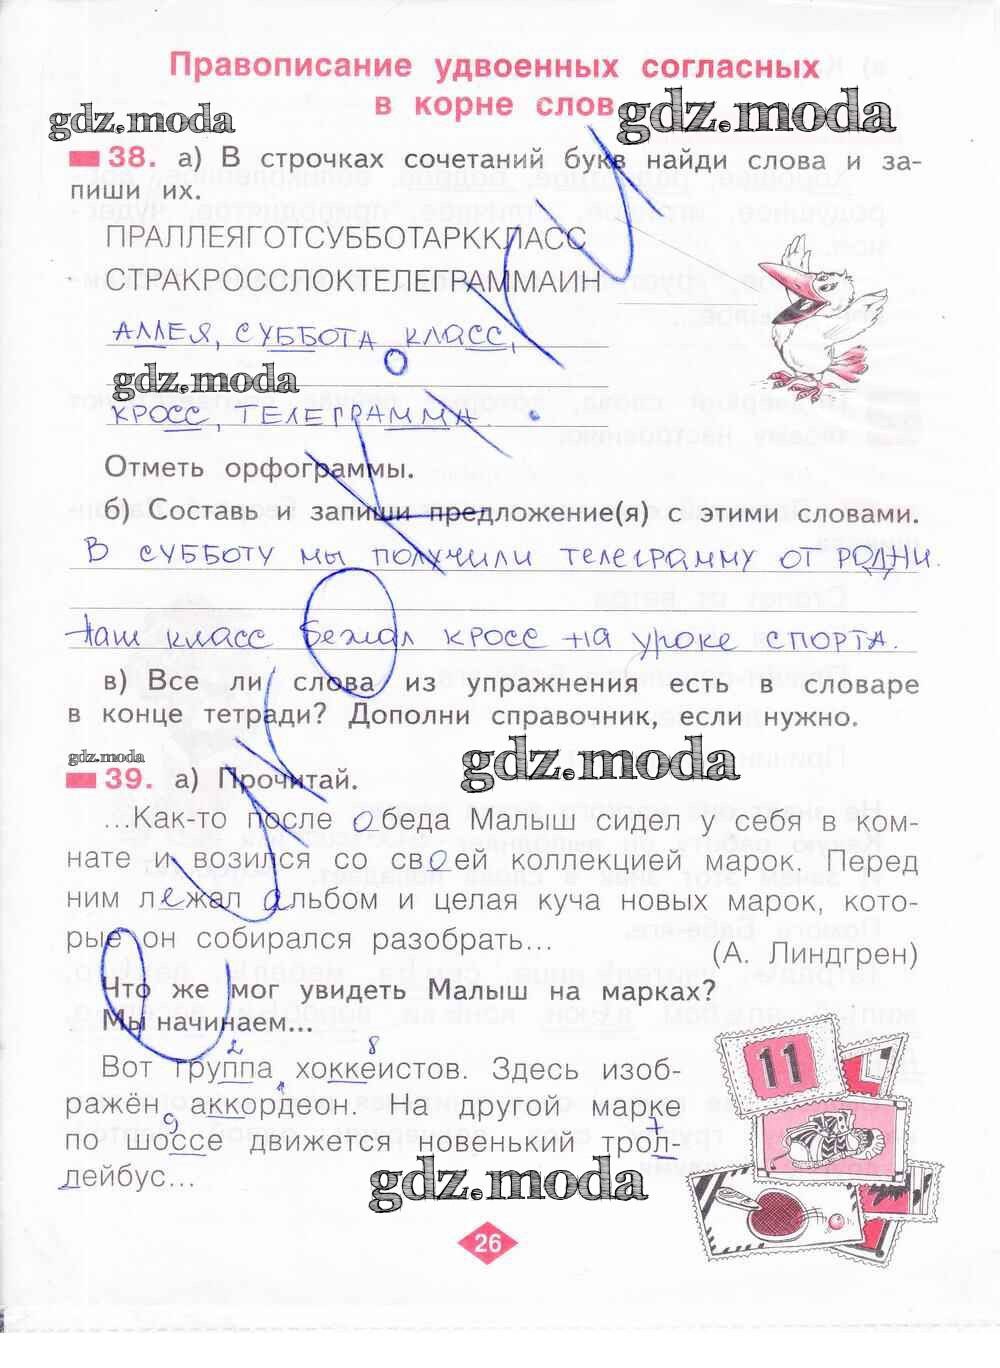 Правописание удвоенных согласных
в корне слов
gdz.moda
gdz.moda
38. а) В строчках сочетаний букв найди слова и за-
пиши их.
ПРАЛЛЕЯГОТСУББОТАРККЛАСС
СТРАКРОССЛОКТЕЛЕГРАММАИН
АЛЛЕЯ, СУББОТА, КЛАСС,
gdz.moda
КРОСС, ТЕЛЕГРАММА.
Отметь орфограммы.
б) Составь и запиши предложение(я) с этими словами.
В СУББОТУ МЫ ПОЛУЧИЛИ ТЕЛЕГРАММУ ОТ РОДНИ.
Наш класс бежал кросс на уроке спорта.
в) Все ли слова из упражнения есть в словаре
в конце тетради? Дополни справочник, если нужно.
gdz.moda
gdz.moda
39. а) Прочитай.
...Как-то после обеда Малыш сидел у себя в ком-
нате и возился со своей коллекцией марок. Перед
ним лежал альбом и целая куча новых марок, кото-
рые он собирался разобрать...
(А. Линдгрен)
Что же мог увидеть Малыш на марках?
Мы начинаем...
Вот группа хоккеистов. Здесь изоб-
ражён аккордеон. На другой марке
по шоссе движется новенький трол-
лейбус...
11
gdz.moda
26